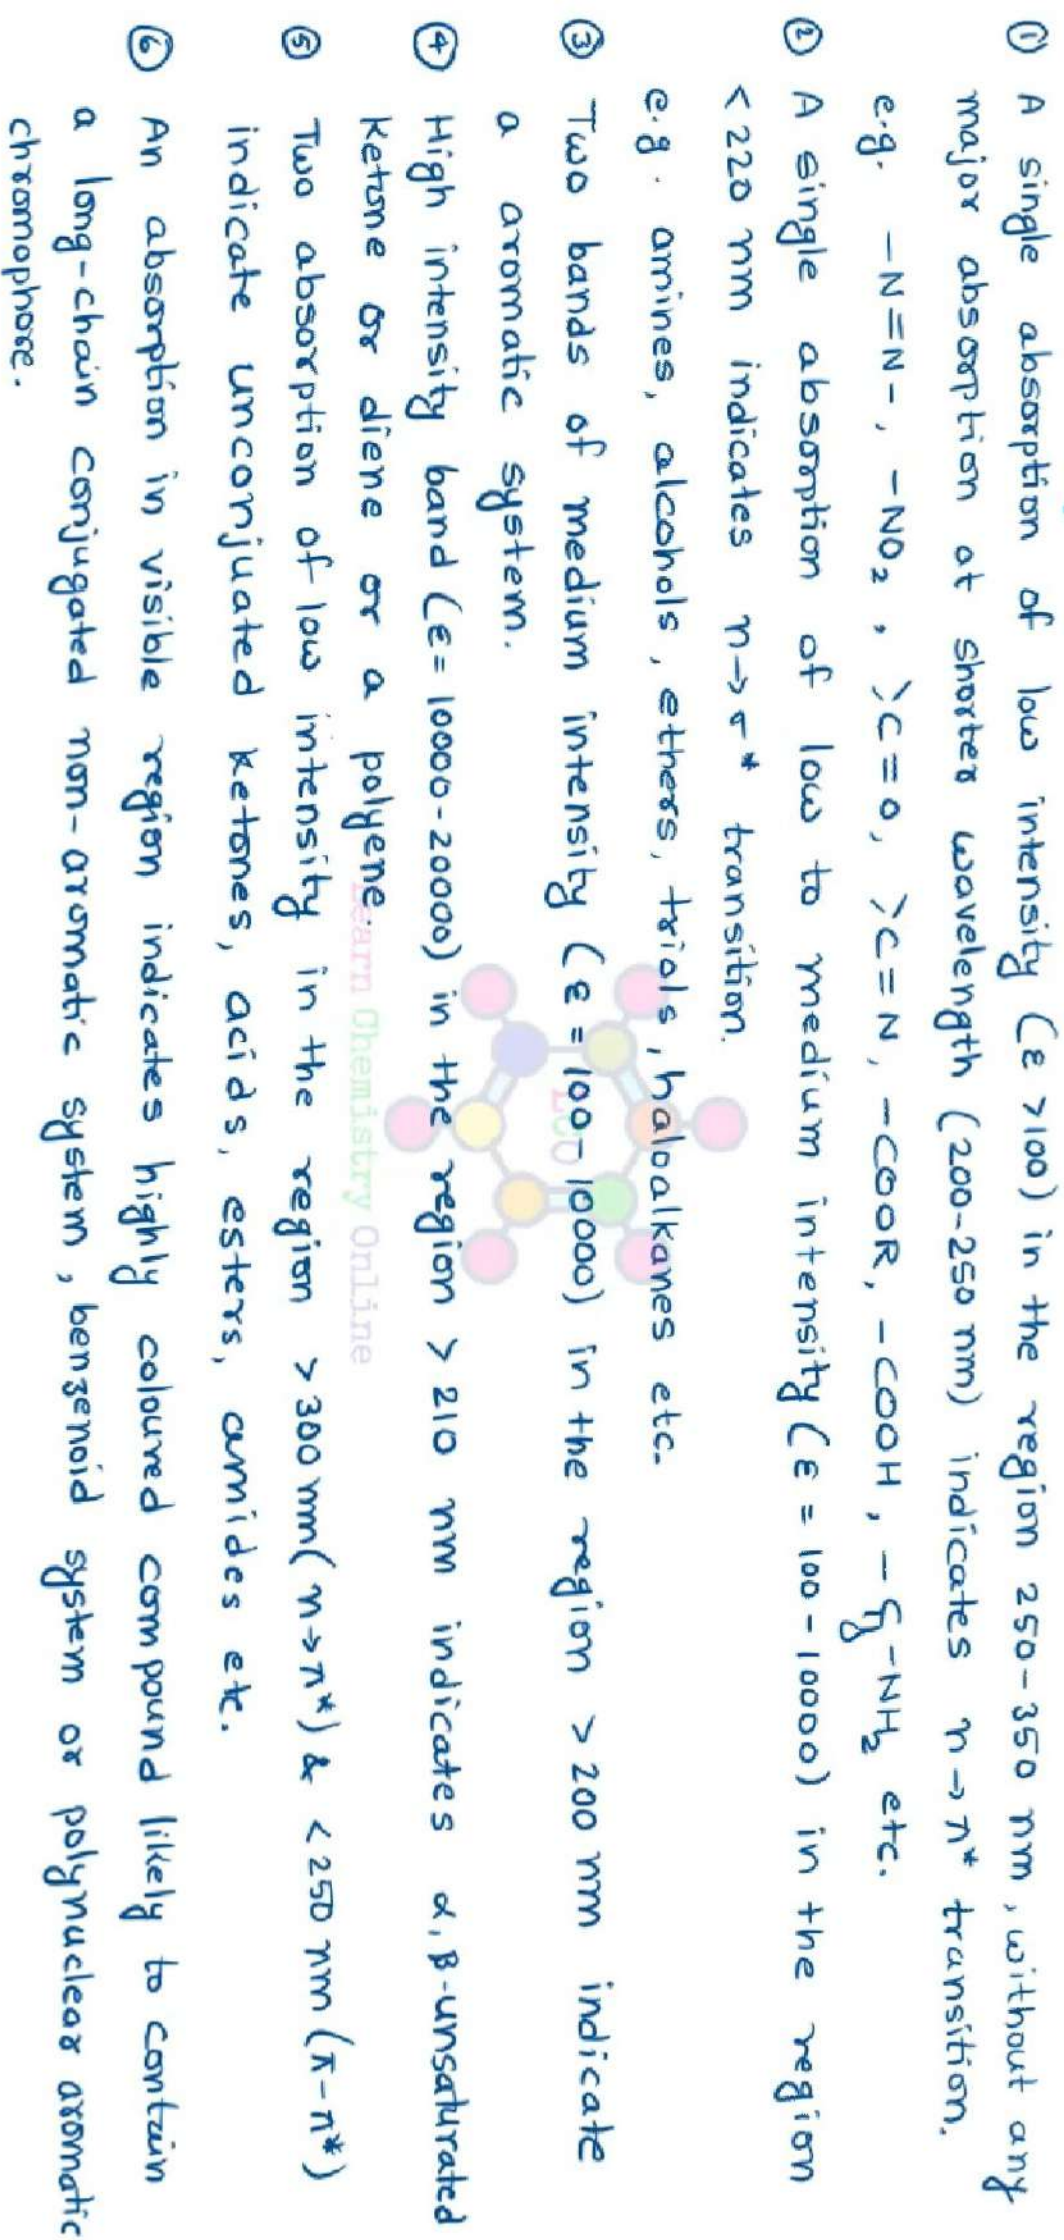 ① A single absorption of low intensity (ε >100) in the region 250-350 nm, without any
major absorption at shorter wavelength (200-250 nm) indicates n→π* transition.
e.g. -N=N-, -NO₂, >C=O, >C=N, -COOR, -COOH, -C(=O)-NH₂ etc.
② A single absorption of low to medium intensity (ε = 100 - 10000) in the region
<220 nm indicates n→σ* transition.
e.g. amines, alcohols, ethers, triols, haloalkanes etc.
③ Two bands of medium intensity (ε = 100-10000) in the region >200 nm indicate
a aromatic system.
④ High intensity band (ε= 10000-20000) in the region >210 nm indicates α,β-unsaturated
Ketone or diene or a polyene.
⑤ Two absorption of low intensity in the region >300nm(n→π*) & <250 nm (π-π*)
indicate unconjuated ketones, acids, esters, amides etc.
⑥ An absorption in visible region indicates highly coloured compound likely to contain
a long-chain conjugated non-aromatic system, benzenoid system or polynuclear aromatic
chromophore.
LCO
Learn Chemistry Online